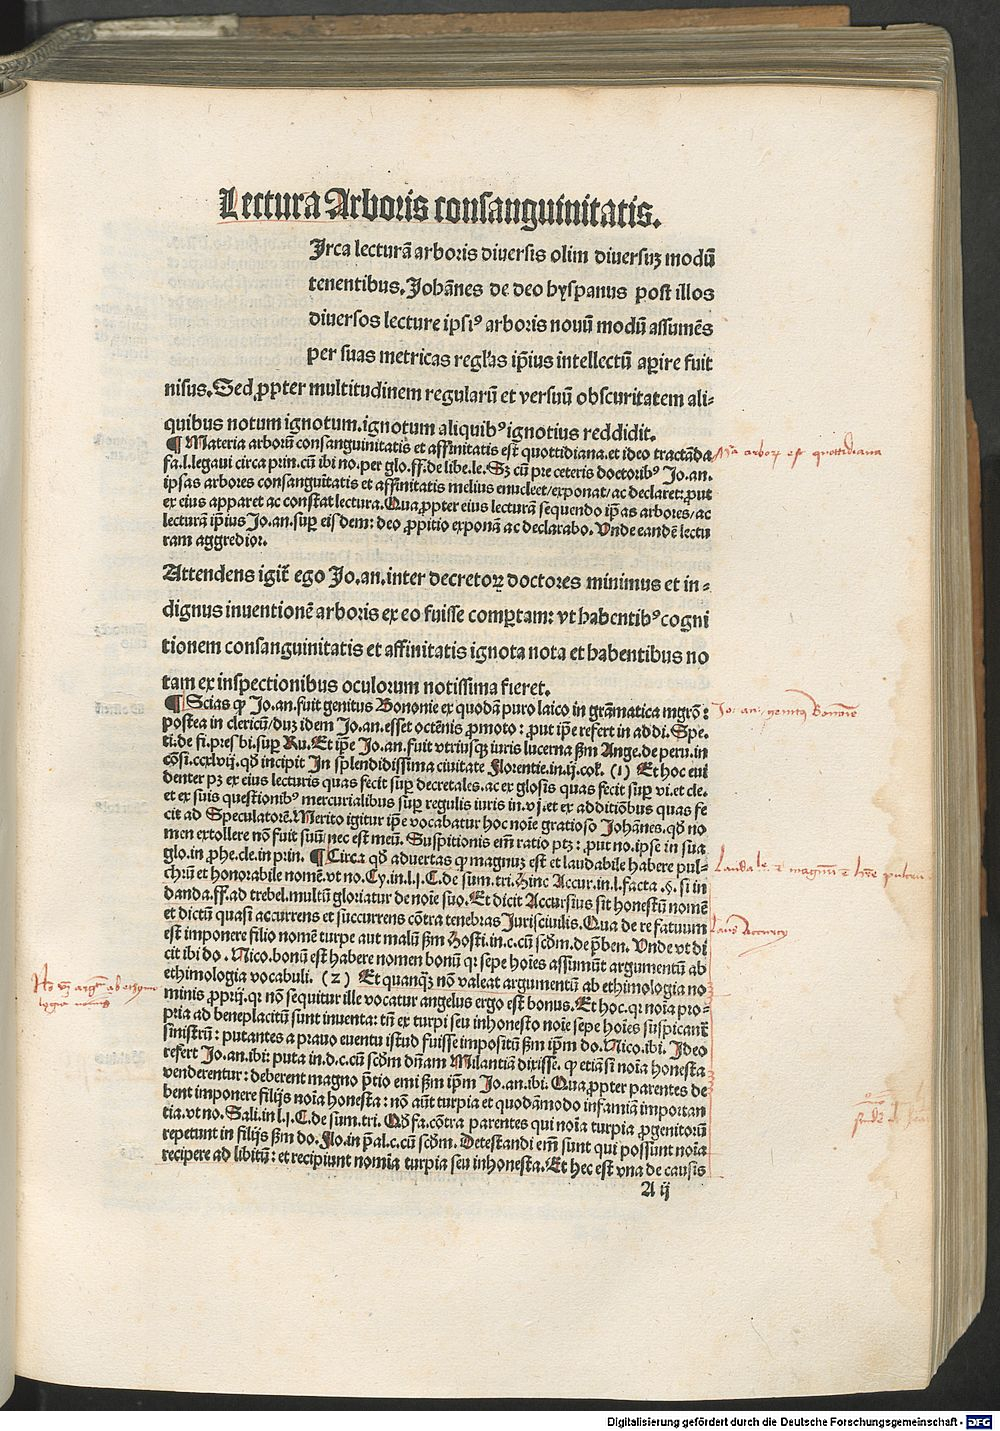 Lectura Arboris consanguinitatis.
Irca lecturā arboris diuersis olim diuersuꝫ modū
tenentibus. Johānes de deo hyspanus post illos
diuersos lecture ipsiꝰ arboris nouū modū assumēs
per suas metricas regl'as ip̄ius intellectū aꝑire fuit
nisus. Sed ꝓpter multitudinem regularū et versuū obscuritatem ali-
quibus notum ignotum. ignotum aliquibꝰ ignotius reddidit.
¶ Materia arborū consanguinitatis et affinitatis est quottidiana. et ideo tractāda
fa. l. legaui circa prin. cū ibi no. per glo. ff. de libe. le. Sꝫ cū pre ceteris doctoribꝰ Jo. an.
ipsas arbores consanguītatis et affinitatis melius enucleet/exponat/ac declaret: ꝓut
ex eius apparet ac constat lectura. Qua ꝓpter eius lecturā sequendo ip̄as arbores/ac
lecturā ip̄ius Jo. an. suꝑ eisdem: deo ꝓpitio exponā ac declarabo. Vnde eandē lectu
ram aggredior.
Attendens igit̄ ego Jo. an. inter decretoꝝ doctores minimus et in-
dignus inuentionē arboris ex eo fuisse comꝑtam: vt habentibꝰ cogni
tionem consanguinitatis et affinitatis ignota nota et habentibus no
tam ex inspectionibus oculorum notissima fieret.
¶ Scias ꝙ Jo. an. fuit genitus Bononie ex quodā puro laico in grāmatica mgrō:
postea in clericū/duꝫ idem Jo. an. esset octēnis ꝓmoto: ꝓut ip̄e refert in addi. Spe.
ti. de fi. pres bi. suꝑ Ru. Et ip̄e Jo. an. fuit vtriusqꝫ iuris lucerna ẜm Ange. de peru. in
cōsi. ccxlvij. qd̄ incipit In splendidissima ciuitate Florentie. in. ij. col. (1) Et hoc eui
denter pꝫ ex eius lecturis quas fecit suꝑ decretales. ac ex glosis quas fecit suꝑ vi. et cle.
et ex suis questionibꝰ mercurialibus suꝑ regulis iuris in. vj. et ex additiōbus quas fe
cit ad Speculatorē. Merito igitur ip̄e vocabatur hoc noīe gratioso Johānes. qd̄ no
men extollere nō fuit suū/nec est meū. Suspitionis em̄ ratio ptꝫ: ꝓut no. ipse in sua
glo. in ꝓhe. cle. in prin. ¶ Circa qd̄ aduertas ꝙ magnuꝫ est et laudabile habere pul-
chrū et honorabile nomē. vt no. Cy. in. l. j. C. de sum. tri. Hinc Accur. in. l. facta. §. si in
danda. ff. ad trebel. multū gloriatur de noīe suo. Et dicit Accursius sit honestū nomē
et dictū quasi accurrens et succurrens cōtra tenebras Juriscivilis. Qua de re fatuum
est imponere filio nomē turpe aut malū ẜm Hosti. in. c. cū scd̄m. de p̄ben. Vnde vt di
cit ibi do. Nico. bonū est habere nomen bonū qꝛ sepe hoīes assumūt argumentū ab
ethimologia vocabuli. (2) Et quanqꝫ nō valeat argumentū ab ethimologia no
minis ꝓprij. qꝛ nō sequitur ille vocatur angelus ergo est bonus. Et hoc. qꝛ noīa pro-
pria ad beneplacitū sunt inuenta: tn̄ ex turpi seu inhonesto noīe sepe hoīes suspicant̄
sinistrū: putantes a prauo euentu istud fuisse impositū ẜm ip̄m do. Nico. ibi. Ideo
refert Jo. an. ibi: puta in. d. c. cū scd̄m dn̄am Milantiā dixisse. ꝙ etiāsi noīa honesta
venderentur: deberent magno p̄tio emi ẜm ip̄m Jo. an. ibi. Qua ꝓpter parentes de
bent imponere filijs noīa honesta: nō aūt turpia et quodāmodo infamiā importan
tia. vt no. Sali. in l. j. C. de sum. tri. Qd̄ fa. cōtra parentes qui noīa turpia ꝓgenitorū
repetunt in filijs ẜm do. Flo. in p̄al. c. cū scd̄m. Detestandi em̄ sunt qui possunt noīa
recipere ad libitū: et recipiunt nomīa turpia seu inhonesta. Et hec est vna de causis
A ij
Mᵃ arboꝝ est quottidiana
Jo. an. genitꝰ Bononie
Digitalisierung gefördert durch die Deutsche Forschungsgemeinschaft - DFG